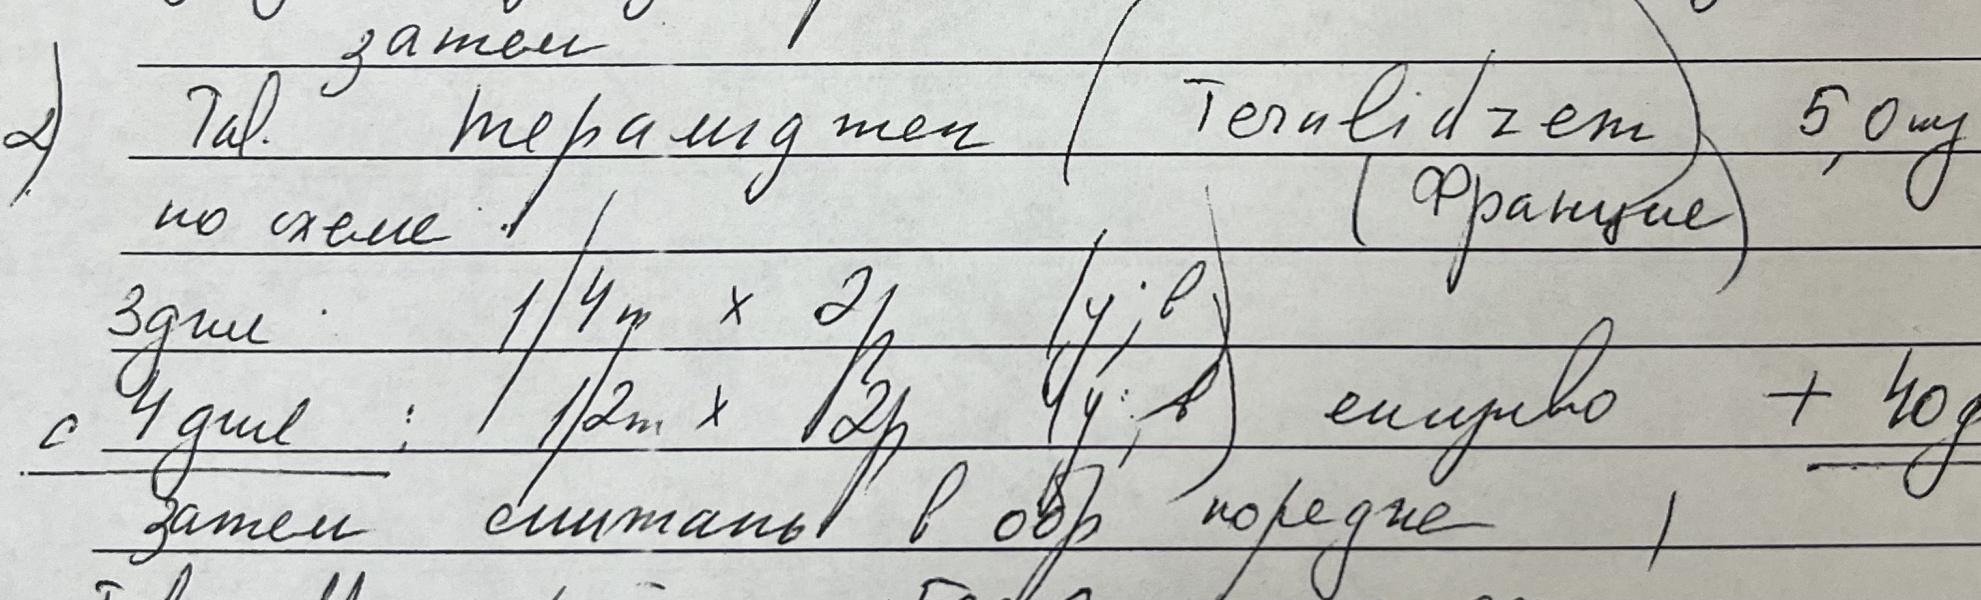 затем
2) Tab. тералиджен ( Teralidzem ) 5,0 mg
по схеме : ( Франция )
3 дня : 1/4 т х 2р (у; в)
с 4 дня : 1/2 т х 2р (у; в) + 40 д
затем в обр порядке